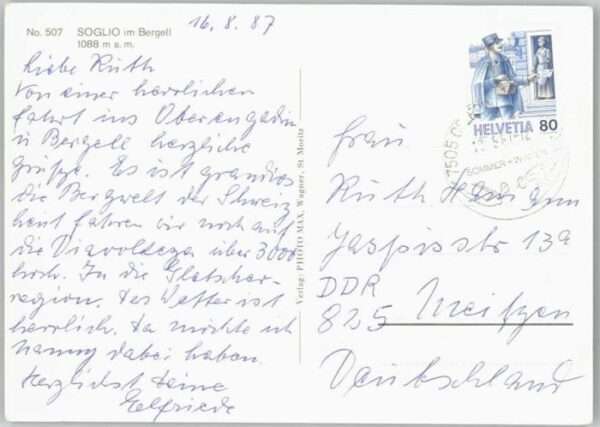 16.8.87
No. 507 SOGLIO im Bergell
1088 m s. m.
Liebe Ruth
Von einer herrlichen
Fahrt ins Oberengadin
u Bergell herzliche
Grüsse. Es ist grandios
die Bergwelt der Schweiz
heut fahren wir noch auf
die Diavolezza über 3000
hoch. In die Gletscher-
region. Das Wetter ist
herrlich. Da möchte ich
dabei haben.
Herzlichst Deine
Elfriede
Verlag: PHOTO MAX, Wagner, St. Moritz
HELVETIA 80
7505
SOMMER
Frau
Ruth
Jaspisstr 13a
DDR
825 Meißen
Deutschland